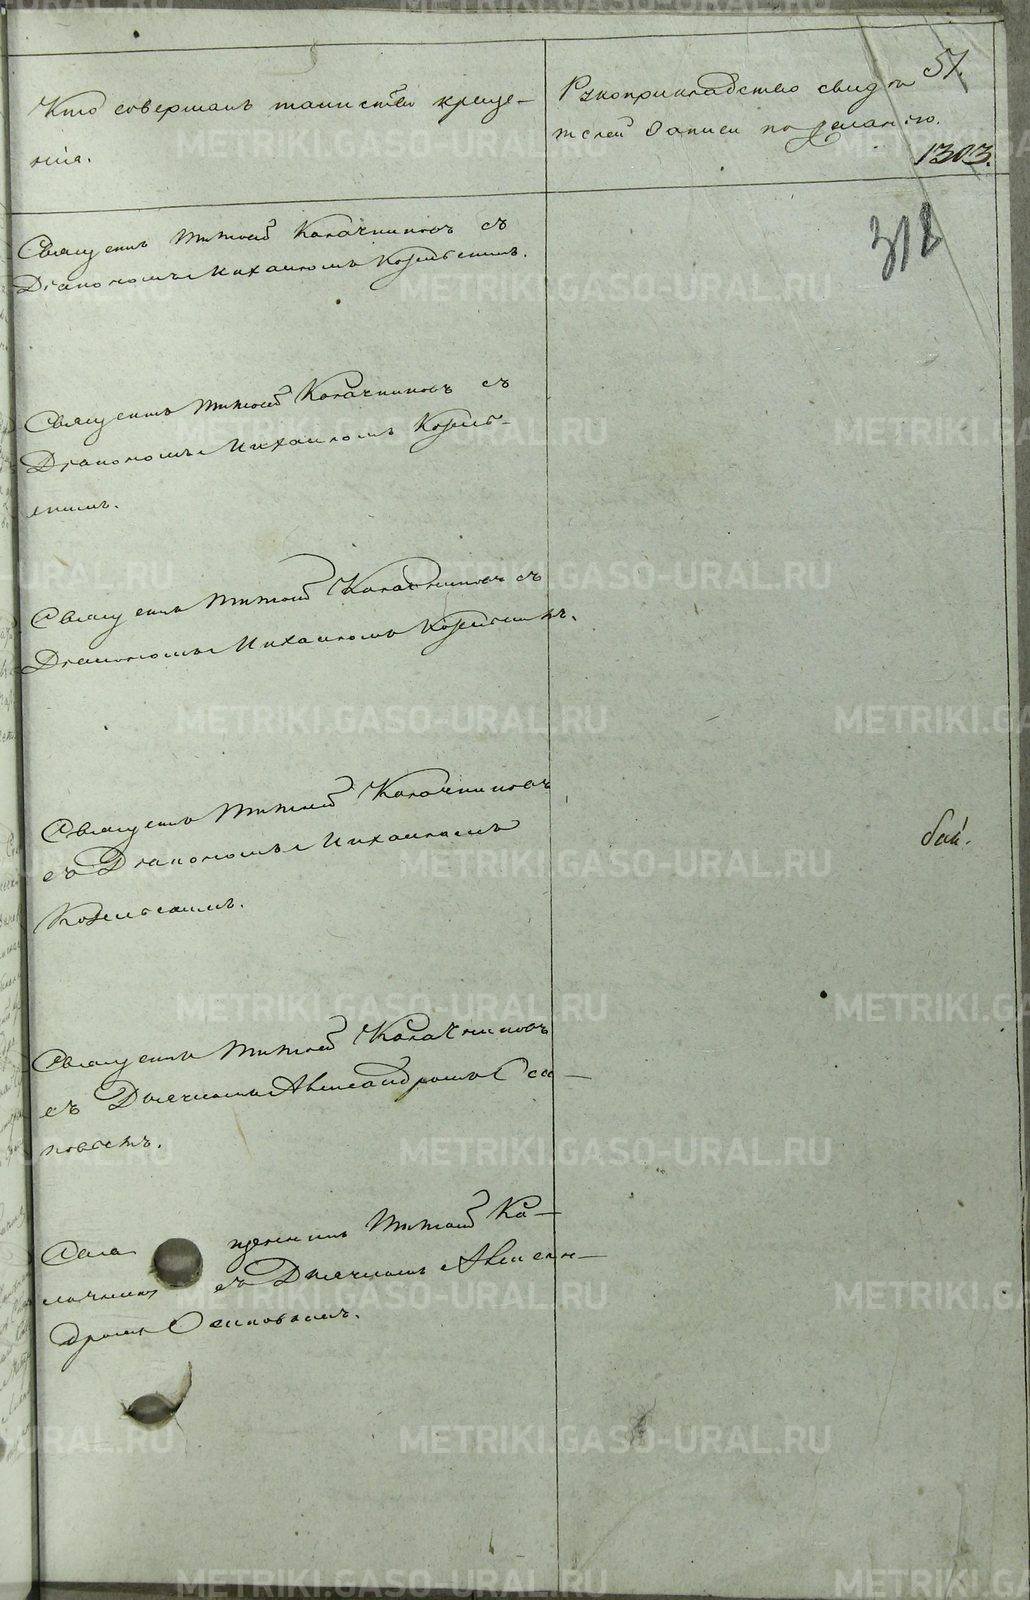 57.
Кто совершалъ таинство креще-
нія.
Рукоприкладство свидѣ-
телей записи по желанію.
1303.
312
Священникъ Тимофей Калачниковъ съ
Діакономъ Михаиломъ
Священникъ Тимофей Калачниковъ съ
Діакономъ Михаиломъ
Священникъ Тимофей Калачниковъ съ
Діакономъ Михаиломъ
Священникъ Тимофей Калачниковъ
съ Діакономъ Михаиломъ
Священникъ Тимофей Калачниковъ
съ Дьячкомъ Александромъ Оси-
повымъ.
Тимофей Ка-
лачниковъ съ Дьячкомъ Алексан-
дромъ Осиповымъ.
METRIKI.GASO-URAL.RU